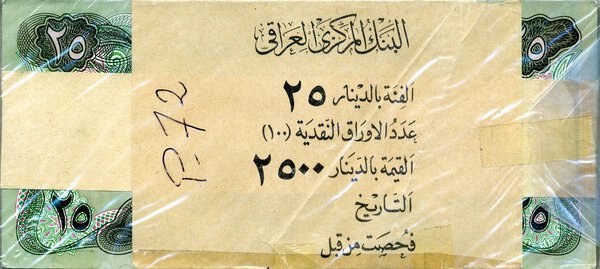 البنك المركزي العراقي
٢٥
٢٥
الفئة بالدينار ٢٥
عدد الاوراق النقدية (١٠٠)
القيمة بالدينار ٢٥٠٠
التاريخ
فحصت من قبل
P-72
٢٥
٢٥